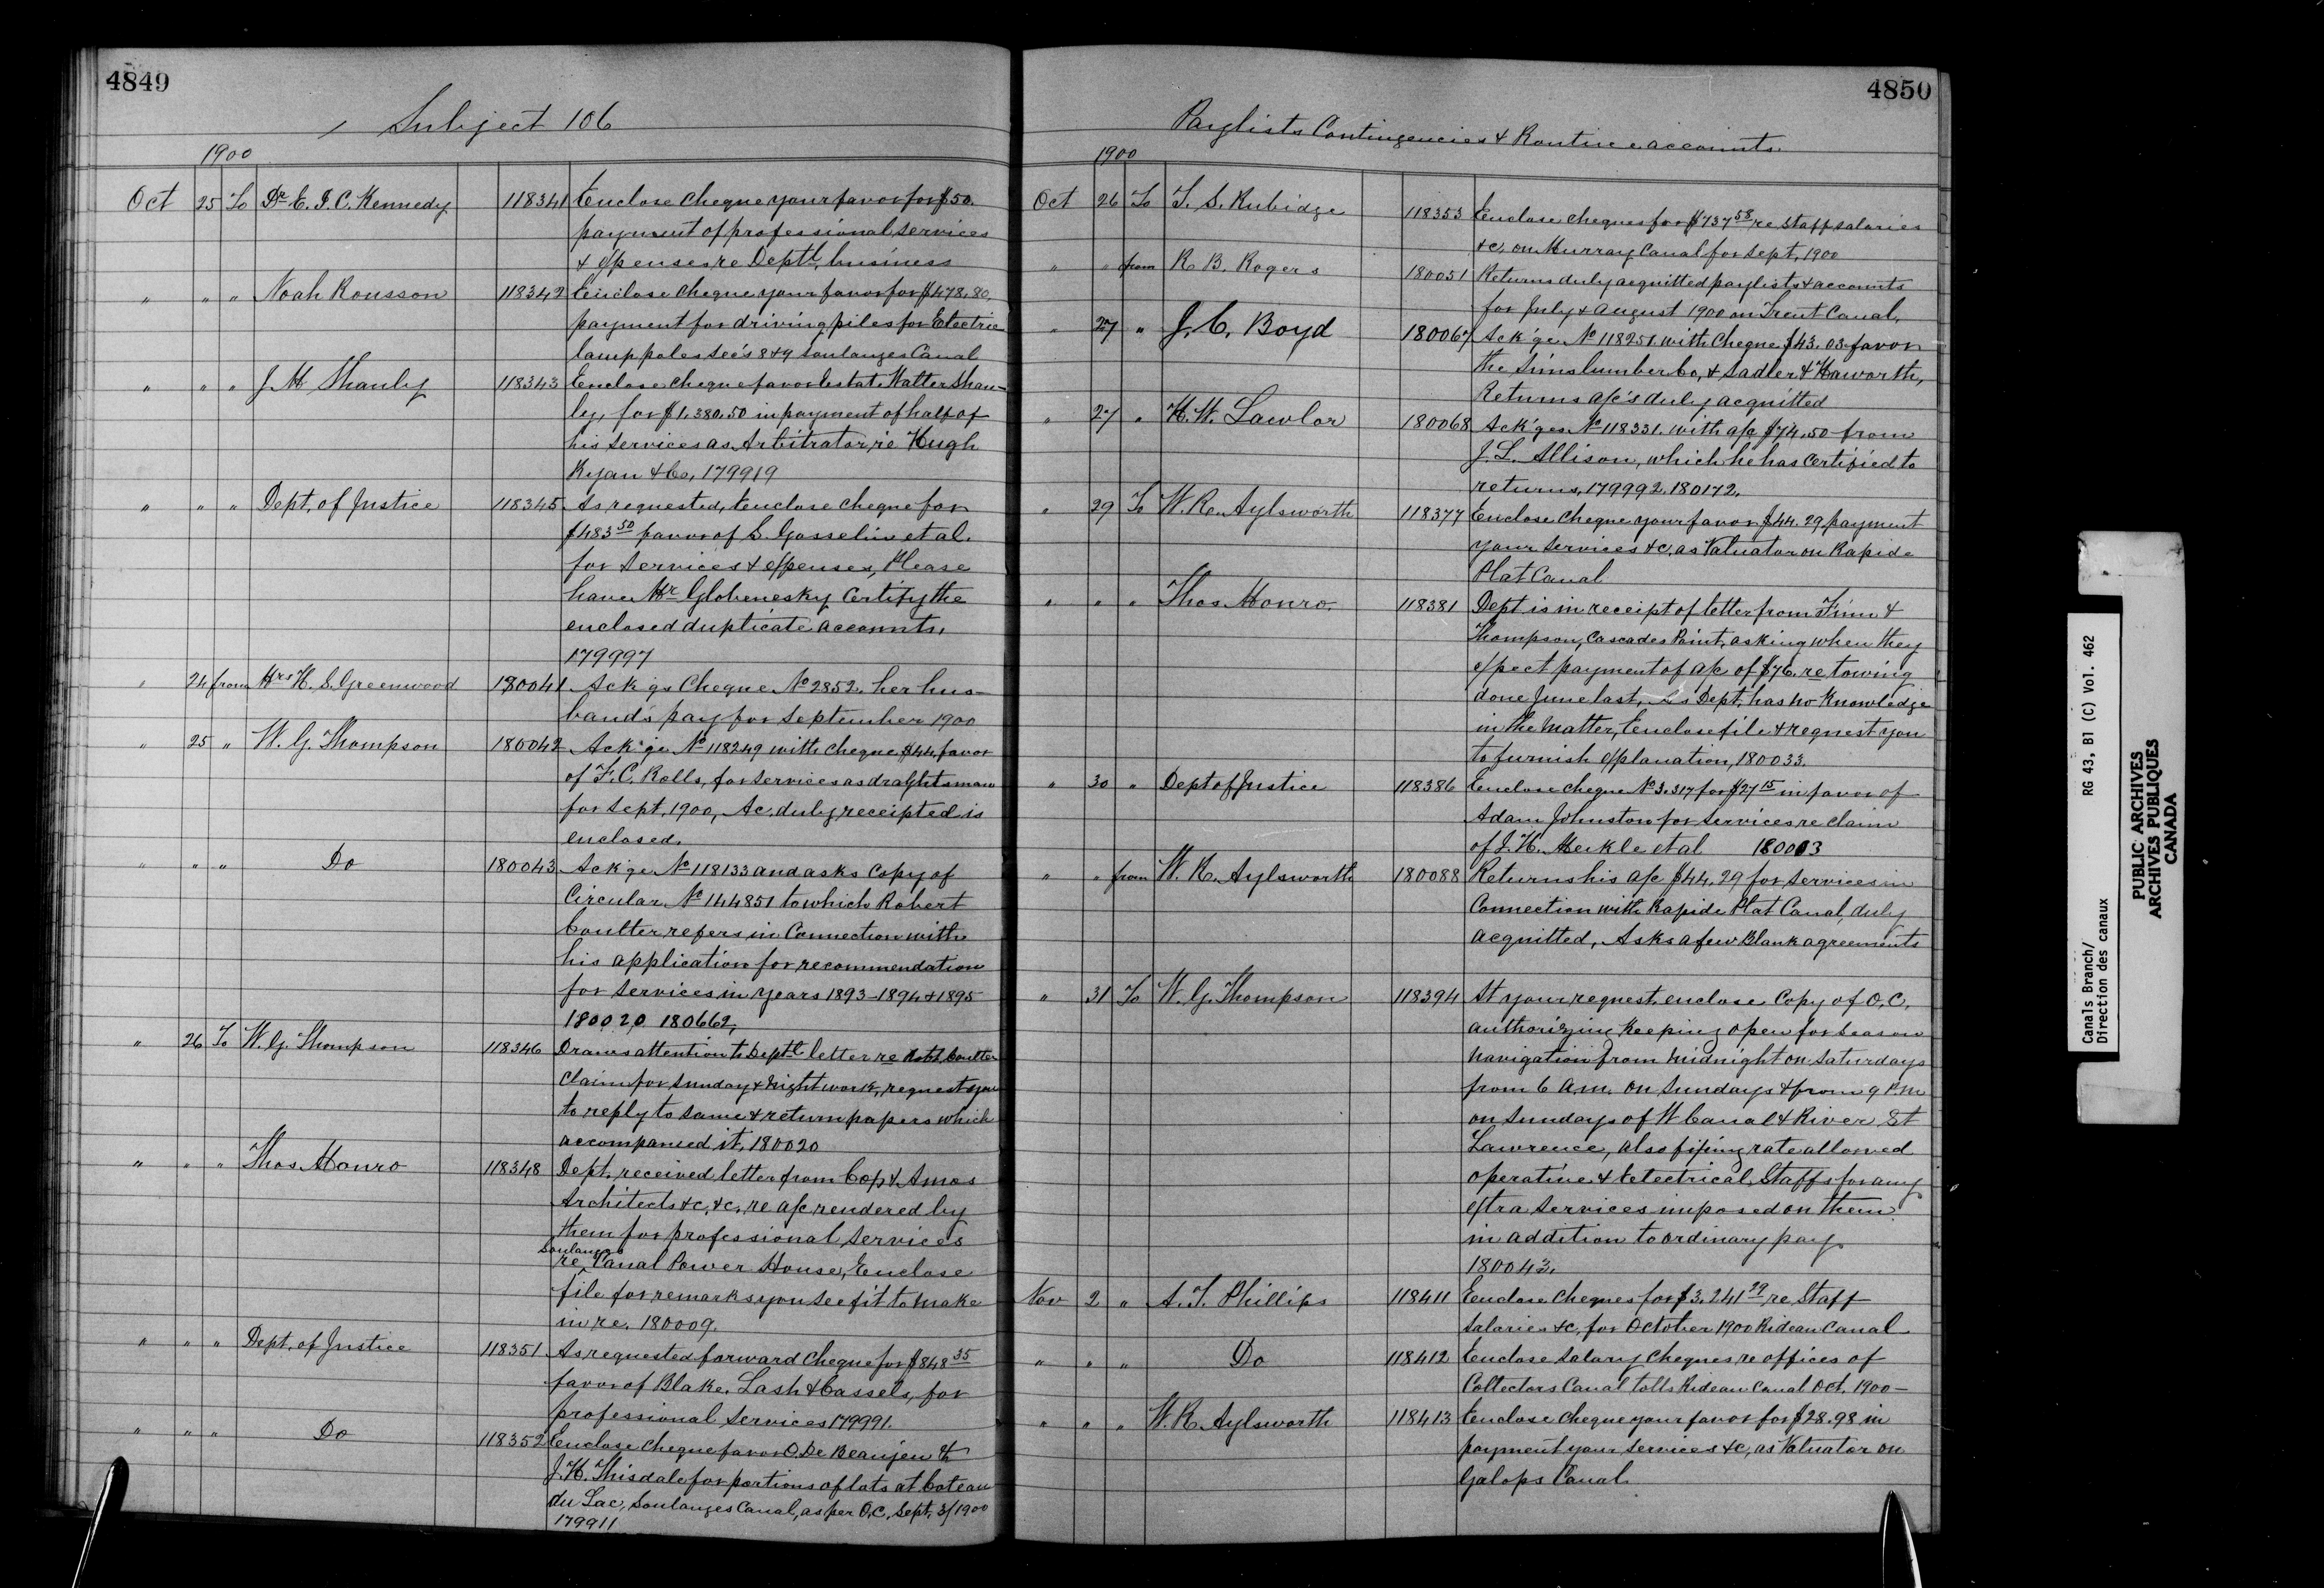 4849
Subject 106
1900
Oct 25 To Dr E. I. C. Kennedy 118341 Enclose cheque your favor for $50.
payment of professional services
& expenses re Deptl. business
" " " Noah Rousson 118342 Enclose cheque your favor for $478.80,
payment for driving piles for Electric
lamp poles Sec's 8&9 Soulanges Canal
" " " J. M Shanly 118343 Enclose cheque favor Estate Walter Shan-
ly, for $1,380.50 in payment of half of
his services as Arbitrator, re Hugh
Ryan & Co, 179919
" " " Dept. of Justice 118345 As requested, enclose cheque for
$483 50 favor of S. Gosselin et al.
for services & expenses, Please
have Mr Globenesky certify the
enclosed duplicate accounts,
179997
" 24 from Mrs H. S. Greenwood 180041 Ack'gs Cheque No 2852. her hus-
band's pay for September 1900
" 25 " W. G. Thompson 180042 Ack'ge No 118249 with cheque $44. favor
of F. C. Rolls, for services as draghtsman
for Sept. 1900, Ac. duly receipted is
enclosed.
" " " Do 180043 Ack'ge No 118133 and asks copy of
Circular No 144851 to which Robert
Coulter refers in Connection with
his application for recommendation
for services in years 1893-1894 & 1895
180020 180662,
" 26 To W. G. Thompson 118346 Draws attention to Deptl letter re Robt. Coulter
claim for Sunday & Night work, request you
to reply to same & return papers which
accompanied it, 180020
" " " Thos Monro 118348 Dept. received letter from Cox & Amos
Architects &c, &c, re a/c rendered by
them for professional services
Soulanges
re Canal Power House, Enclose
file for remarks you see fit to make
in re. 180009.
" " " Dept. of Justice 118351 As requested forward cheque for $848 35
favor of Blake, Lash & Cassels, for
professional services 179991.
" " " Do 118352 Enclose cheque favor O. De Beaujeu &
J. H. Thisdale for portions of lots at Coteau
du Lac, Soulanges Canal, as per O.C. Sept. 3/1900
179911
4850
Paylists Contingencies & Routine accounts
1900
Oct 26 To T. S. Rubidge 118353 Enclose cheques for $737 58 re Staff salaries
&c, on Murray Canal for Sept, 1900
" " from R. B. Rogers 180051 Returns duly acquitted paylists & accounts
for July & August 1900 on Trent Canal,
" 27 " J. C. Boyd 180067 Ack'ge No 118251. with cheque $43.03 favor
the Sims lumber Co, & Sadler & Haworth,
Returns a/c's duly acquitted
" 27 " H. W. Lawlor 180068 Ack'ges No 118331. with a/c $74.50 from
J. L. Allison, which he has certified to
returns, 179992. 180172.
" 29 To W. R. Aylsworth 118377 Enclose cheque your favor $44.29, payment
your services &c, as Valuator on Rapide
Plat Canal
" " " Thos Monro 118381 Dept is in receipt of letter from Finn &
Thompson, Cascades Point, asking when they
expect payment of a/c of $76. re towing
done June last, As Dept, has no knowledge
in the matter, Enclose file & request you
to furnish explanation, 180033.
" 30 " Dept of Justice 118386 Enclose cheque No 3.317 for $27 15 in favor of
Adam Johnston for services re claim
of J. H. Meikle et al 180013
" " from W. R. Aylsworth 180088 Returns his a/c $44.29 for services in
Connection with Rapide Plat Canal, duly
acquitted, Asks a few Blank agreements
" 31 To W. G. Thompson 118394 At your request enclose Copy of O.C.
authorizing Keeping open for season
navigation from midnight on Saturdays
from 6 a.m. on Sundays & from 9 P.M
on Sundays of W Canal & River St
Lawrence, also fixing rate allowed
operative & electrical Staffs for any
extra services imposed on them
in addition to ordinary pay
180043.
Nov 2 " A. T. Phillips 118411 Enclose cheques for $3,241 29 re Staff
Salaries &c, for October 1900 Rideau Canal
" " " Do 118412 Enclose salary cheques re offices of
Collectors Canal tolls Rideau Canal Oct. 1900-
" " " W. R. Aylsworth 118413 Enclose cheque your favor for $28.98 in
payment your services &c, as Valuator on
Galops Canal
Canals Branch/ RG 43, B1 (C) Vol. 462
Direction des canaux
PUBLIC ARCHIVES
ARCHIVES PUBLIQUES
CANADA